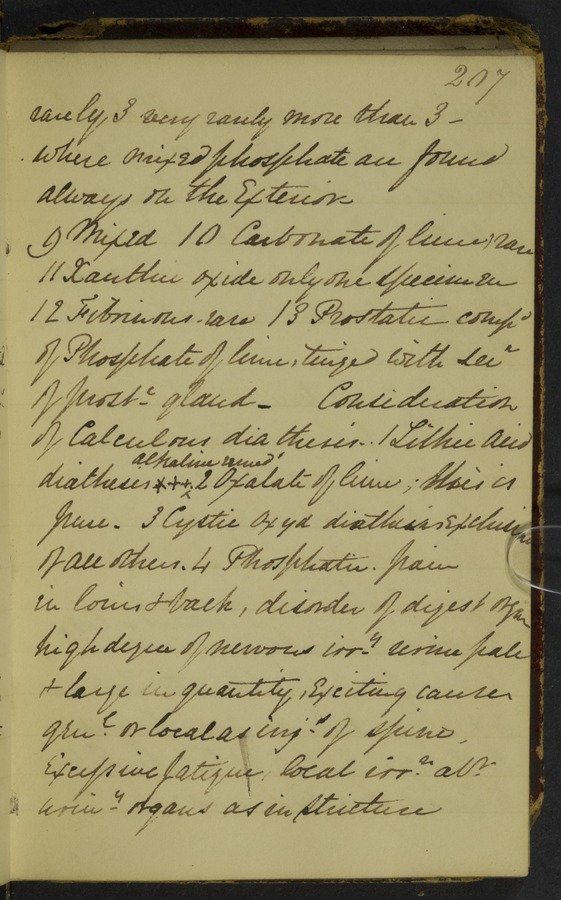 207
rarely 3 very rarely more than 3 -
where mixed phosphate are found
always on the Exterior
9 Mixed 10 Carbonate of lime, rare
11 Xanthic oxide only one specimen
12 Fibrinous - rare 13 Prostatic comp^d
of Phosphate of lime, tinged with sec^n
of prost^c gland - Consideration
of Calculous diathesis - 1 Lithic Acid
alkaline remed^s
diatheses +++. 2 Oxalate of lime, this is
pure - 3 Cystic oxyd diathesis Exclusive
of all others. 4 Phosphatic. pain
in loins & back, disorder of digest organ
high degree of nervous irr^y urine pale
& large in quantity, Exciting causes
gen^l or local as inj^s of spine,
Excessive fatigue, local irr^n ab^t
urin^y organs as in stricture